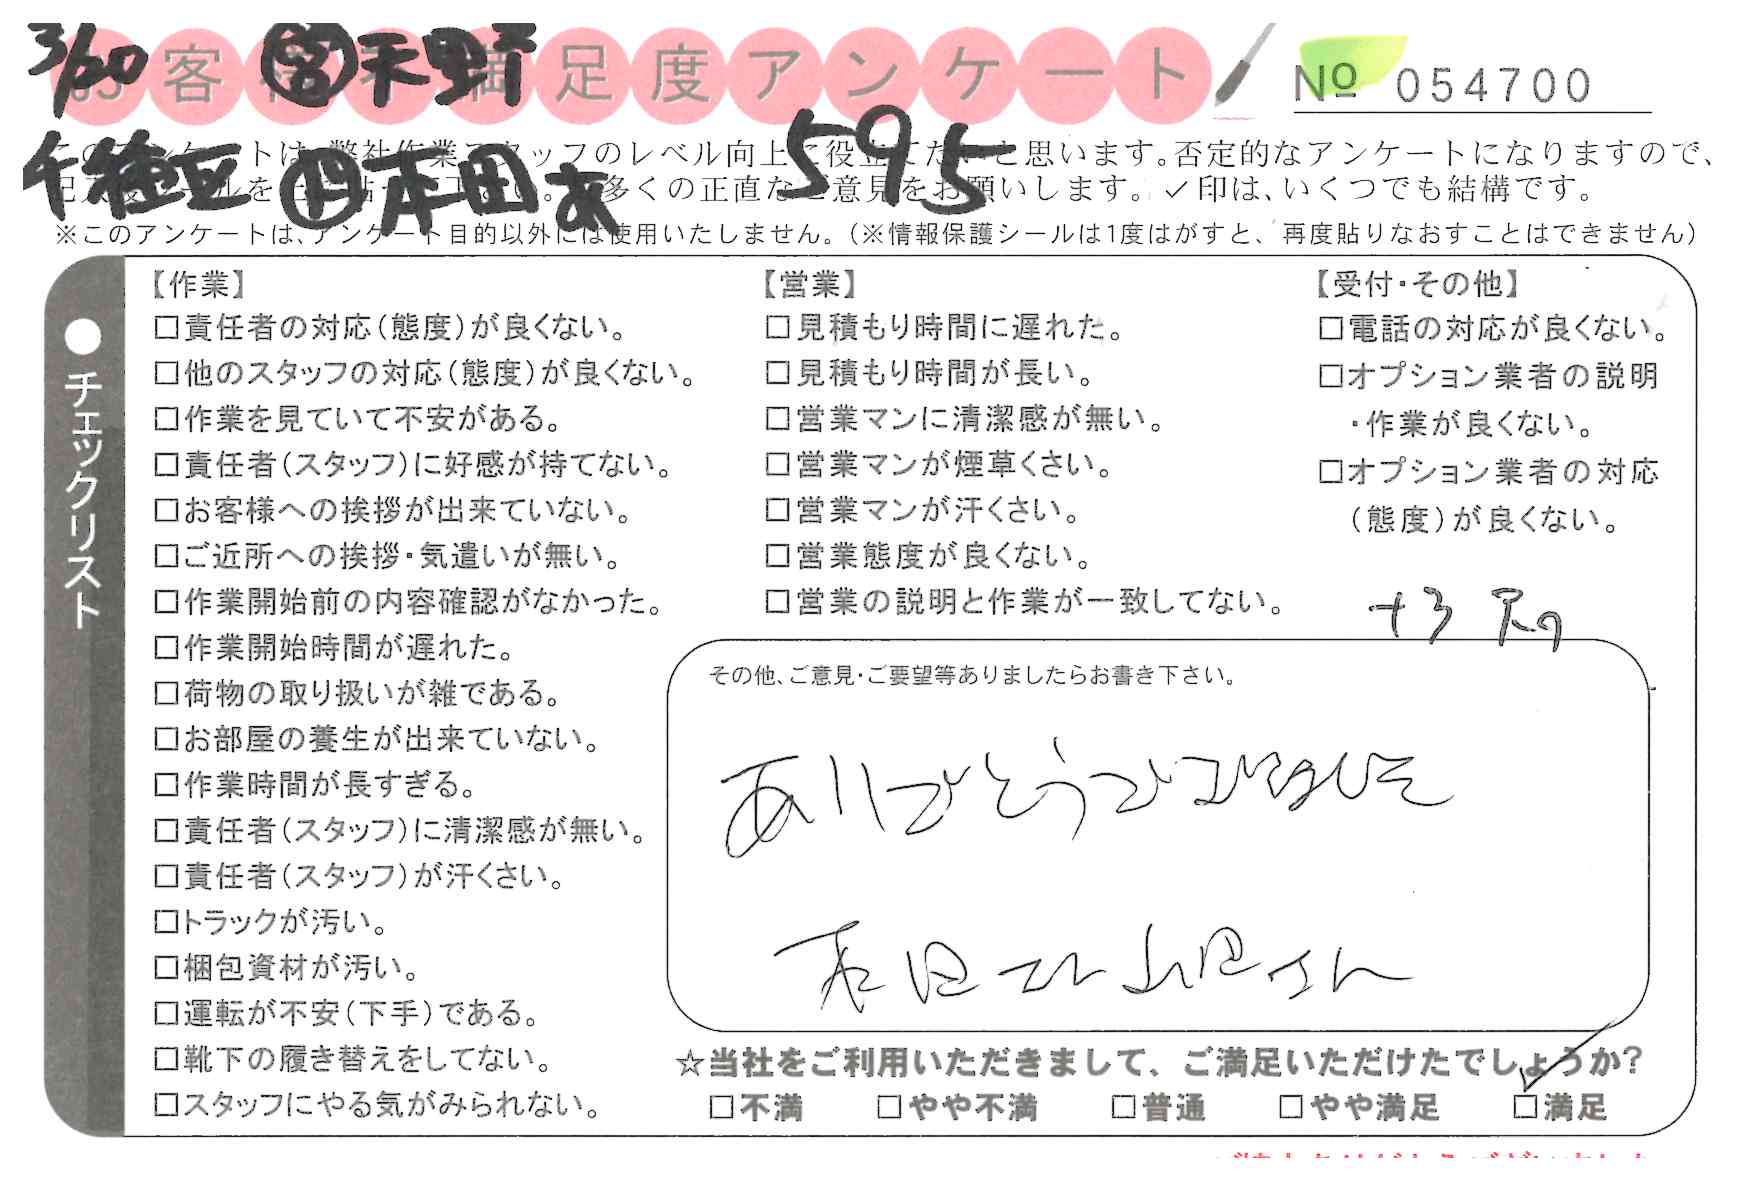 3/20 客 天野 客 満足度アンケート
№ 054700
千種区 本田 あ 595
このアンケートは、弊社作業スタッフのレベル向上に役立てたいと思います。否定的なアンケートになりますので、
多くの正直なご意見をお願いします。✓印は、いくつでも結構です。
※このアンケートは、アンケート目的以外には使用いたしません。(※情報保護シールは1度はがすと、再度貼りなおすことはできません)
●チェックリスト
【作業】
□責任者の対応(態度)が良くない。
□他のスタッフの対応(態度)が良くない。
□作業を見ていて不安がある。
□責任者(スタッフ)に好感が持てない。
□お客様への挨拶が出来ていない。
□ご近所への挨拶・気遣いが無い。
□作業開始前の内容確認がなかった。
□作業開始時間が遅れた。
□荷物の取り扱いが雑である。
□お部屋の養生が出来ていない。
□作業時間が長すぎる。
□責任者(スタッフ)に清潔感が無い。
□責任者(スタッフ)が汗くさい。
□トラックが汚い。
□梱包資材が汚い。
□運転が不安(下手)である。
□靴下の履き替えをしてない。
□スタッフにやる気がみられない。
【営業】
□見積もり時間に遅れた。
□見積もり時間が長い。
□営業マンに清潔感が無い。
□営業マンが煙草くさい。
□営業マンが汗くさい。
□営業態度が良くない。
□営業の説明と作業が一致してない。
【受付・その他】
□電話の対応が良くない。
□オプション業者の説明
・作業が良くない。
□オプション業者の対応
(態度)が良くない。
その他、ご意見・ご要望等ありましたらお書き下さい。
ありがとうございました
☆当社をご利用いただきまして、ご満足いただけたでしょうか?
□不満 □やや不満 □普通 □やや満足 □満足